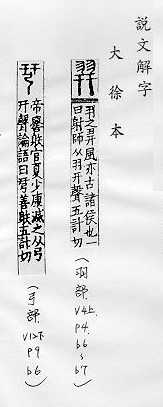 說文解字
大徐本
羿
羽之羿風亦古諸侯也一
曰射師从羽幵聲五計切
(羽部, V4上, P4. b6~b7)
𢏗
帝嚳䠶官夏少康滅之从弓
幵聲論語曰𢏗善䠶五計切
(弓部, V12下 P9 b6)